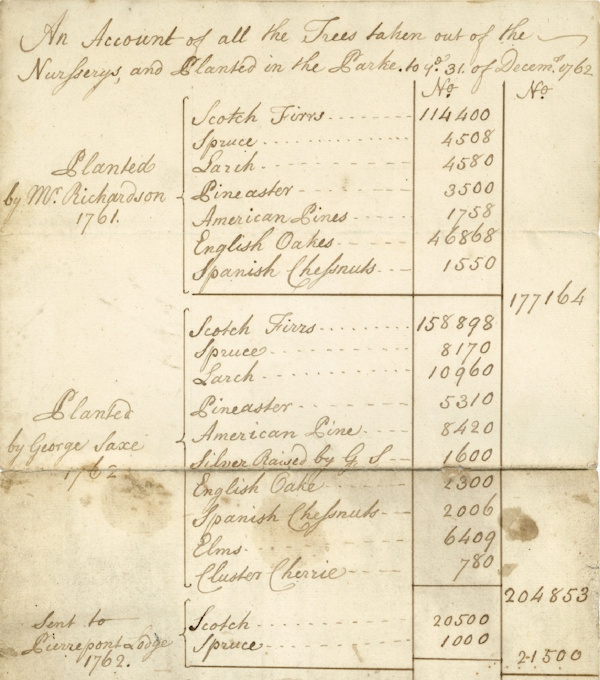 An Account of all the Trees taken out of the
Nursserys, and Planted in the Parke. to ye. 31. of Decemr. 1762
No. No.
Planted
by Mr. Richardson
1761.
Scotch Firrs 114400
Spruce 4508
Larch 4580
Pineaster 3500
American Pines 1758
English Oakes 46868
Spanish Chessnuts 1550
177164
Planted
by George Saxe
1762
Scotch Firrs 158898
Spruce 8170
Larch 10960
Pineaster 5310
American Pine 8420
Silver Raised by G S 1600
English Oake 2300
Spanish Chessnuts 2006
Elms 6409
Cluster Cherrie 780
204853
Sent to
Pierrepont Lodge
1762.
Scotch 20500
Spruce 1000
21500